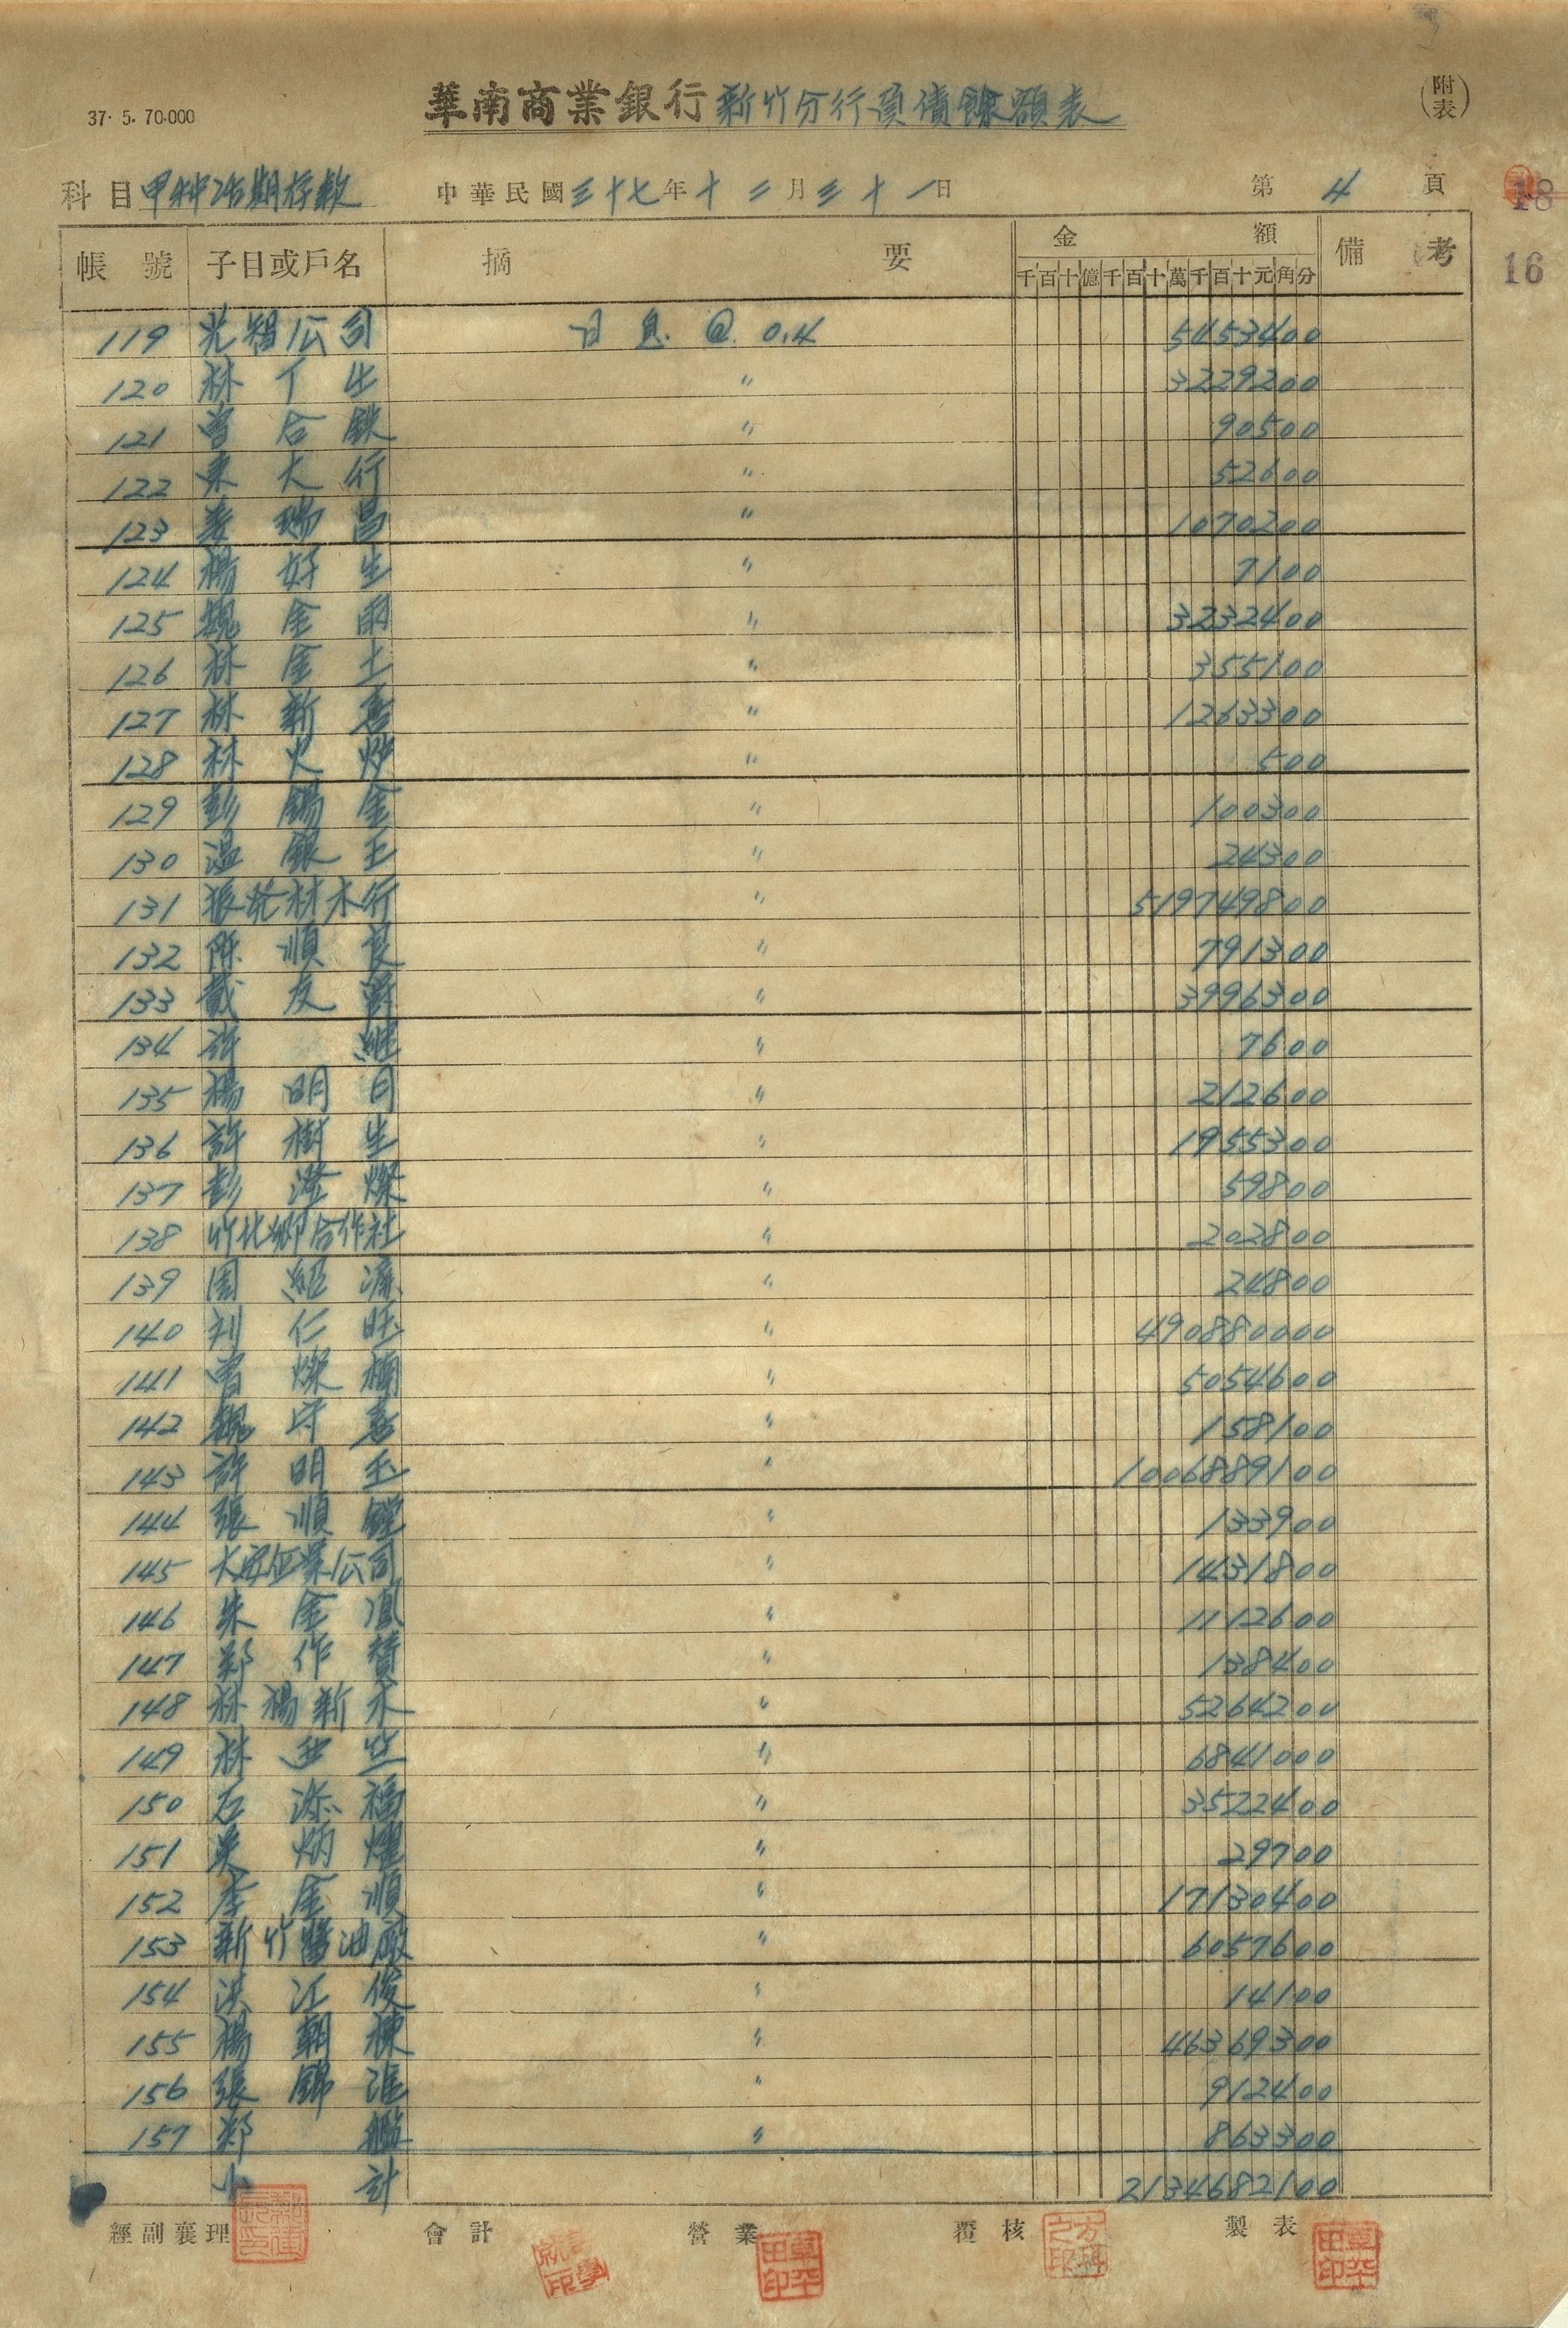 華南商業銀行新竹分行負債餘額表
(附表)
37. 5. 70.000
科目 甲種活期存款 中華民國三十七年十二月三十一日 第4頁
18
16
帳號 子目或戶名 摘要 金額 備考
千百十億千百十萬千百十元角分
119 光智公司 日息@0.4 5453400
120 林丁生 〃 3229200
121 曾合鉄 〃 90500
122 東大行 〃 52600
123 姜瑞昌 〃 1070200
124 楊好生 〃 7100
125 魏金 〃 3232400
126 林金土 〃 355100
127 林新喜 〃 1263300
128 林火炒 〃 500
129 彭錫金 〃 100300
130 溫銀玉 〃 24300
131 振 材木行 〃 519749800
132 陳順良 〃 791300
133 戴友 〃 3996300
134 許継 〃 7600
135 楊明月 〃 212600
136 許樹生 〃 1955300
137 彭澄燦 〃 59800
138 竹北鄉合作社 〃 202800
139 周紹源 〃 24800
140 刘仁旺 〃 490880000
141 曾燦楠 〃 5054600
142 魏守喜 〃 158100
143 許明玉 〃 1006889100
144 張順鏗 〃 133900
145 大安企業公司 〃 1431800
146 朱金鳳 〃 1112600
147 鄭作贊 〃 138400
148 林楊新木 〃 5264200
149 林 〃 6841000
150 石添福 〃 3522400
151 吳炳煌 〃 29700
152 李金順 〃 17130400
153 新竹醬油廠 〃 6057600
154 洪江俊 〃 14100
155 楊朝棟 〃 46369300
156 張錦淮 〃 912400
157 鄭艦 〃 863300
小計 2134682100
經副襄理 會計 營業 覆核 製表